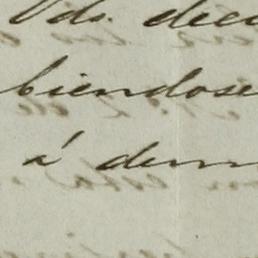 Uds. dec
biendose
á dem